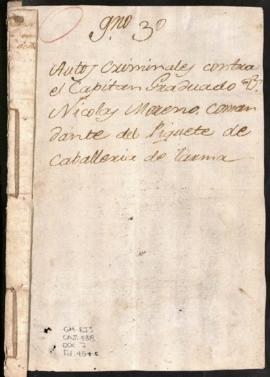 qno 3o
Autos Criminales contra
el Capitan Graduado Dn.
Nicolas Moreno, coman
dante del Piquete de
Caballeria de Tarma
DOC 7